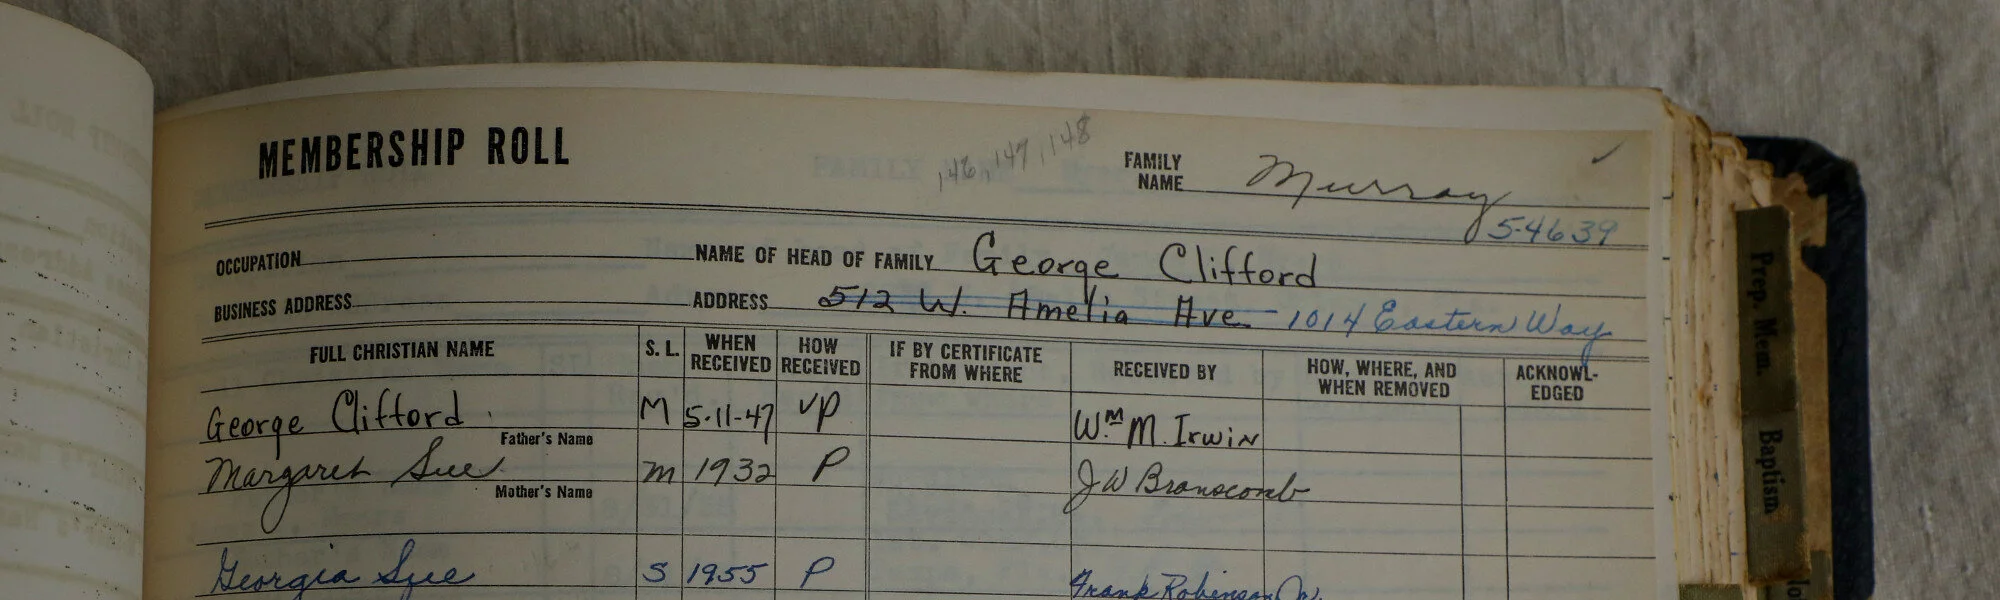 MEMBERSHIP ROLL
146, 147, 148
FAMILY NAME Murray
5-4639
OCCUPATION NAME OF HEAD OF FAMILY George Clifford
BUSINESS ADDRESS ADDRESS 512 W. Amelia Ave. 1014 Eastern Way
FULL CHRISTIAN NAME S. L. WHEN RECEIVED HOW RECEIVED IF BY CERTIFICATE FROM WHERE RECEIVED BY HOW, WHERE, AND WHEN REMOVED ACKNOWL-EDGED
George Clifford M 5-11-47 VP Wm. M. Irwin
Father's Name
Margaret Sue M 1932 P J W Branscomb
Mother's Name
Georgia Sue S 1955 P Frank Robinson
Prep. Mem.
Baptism